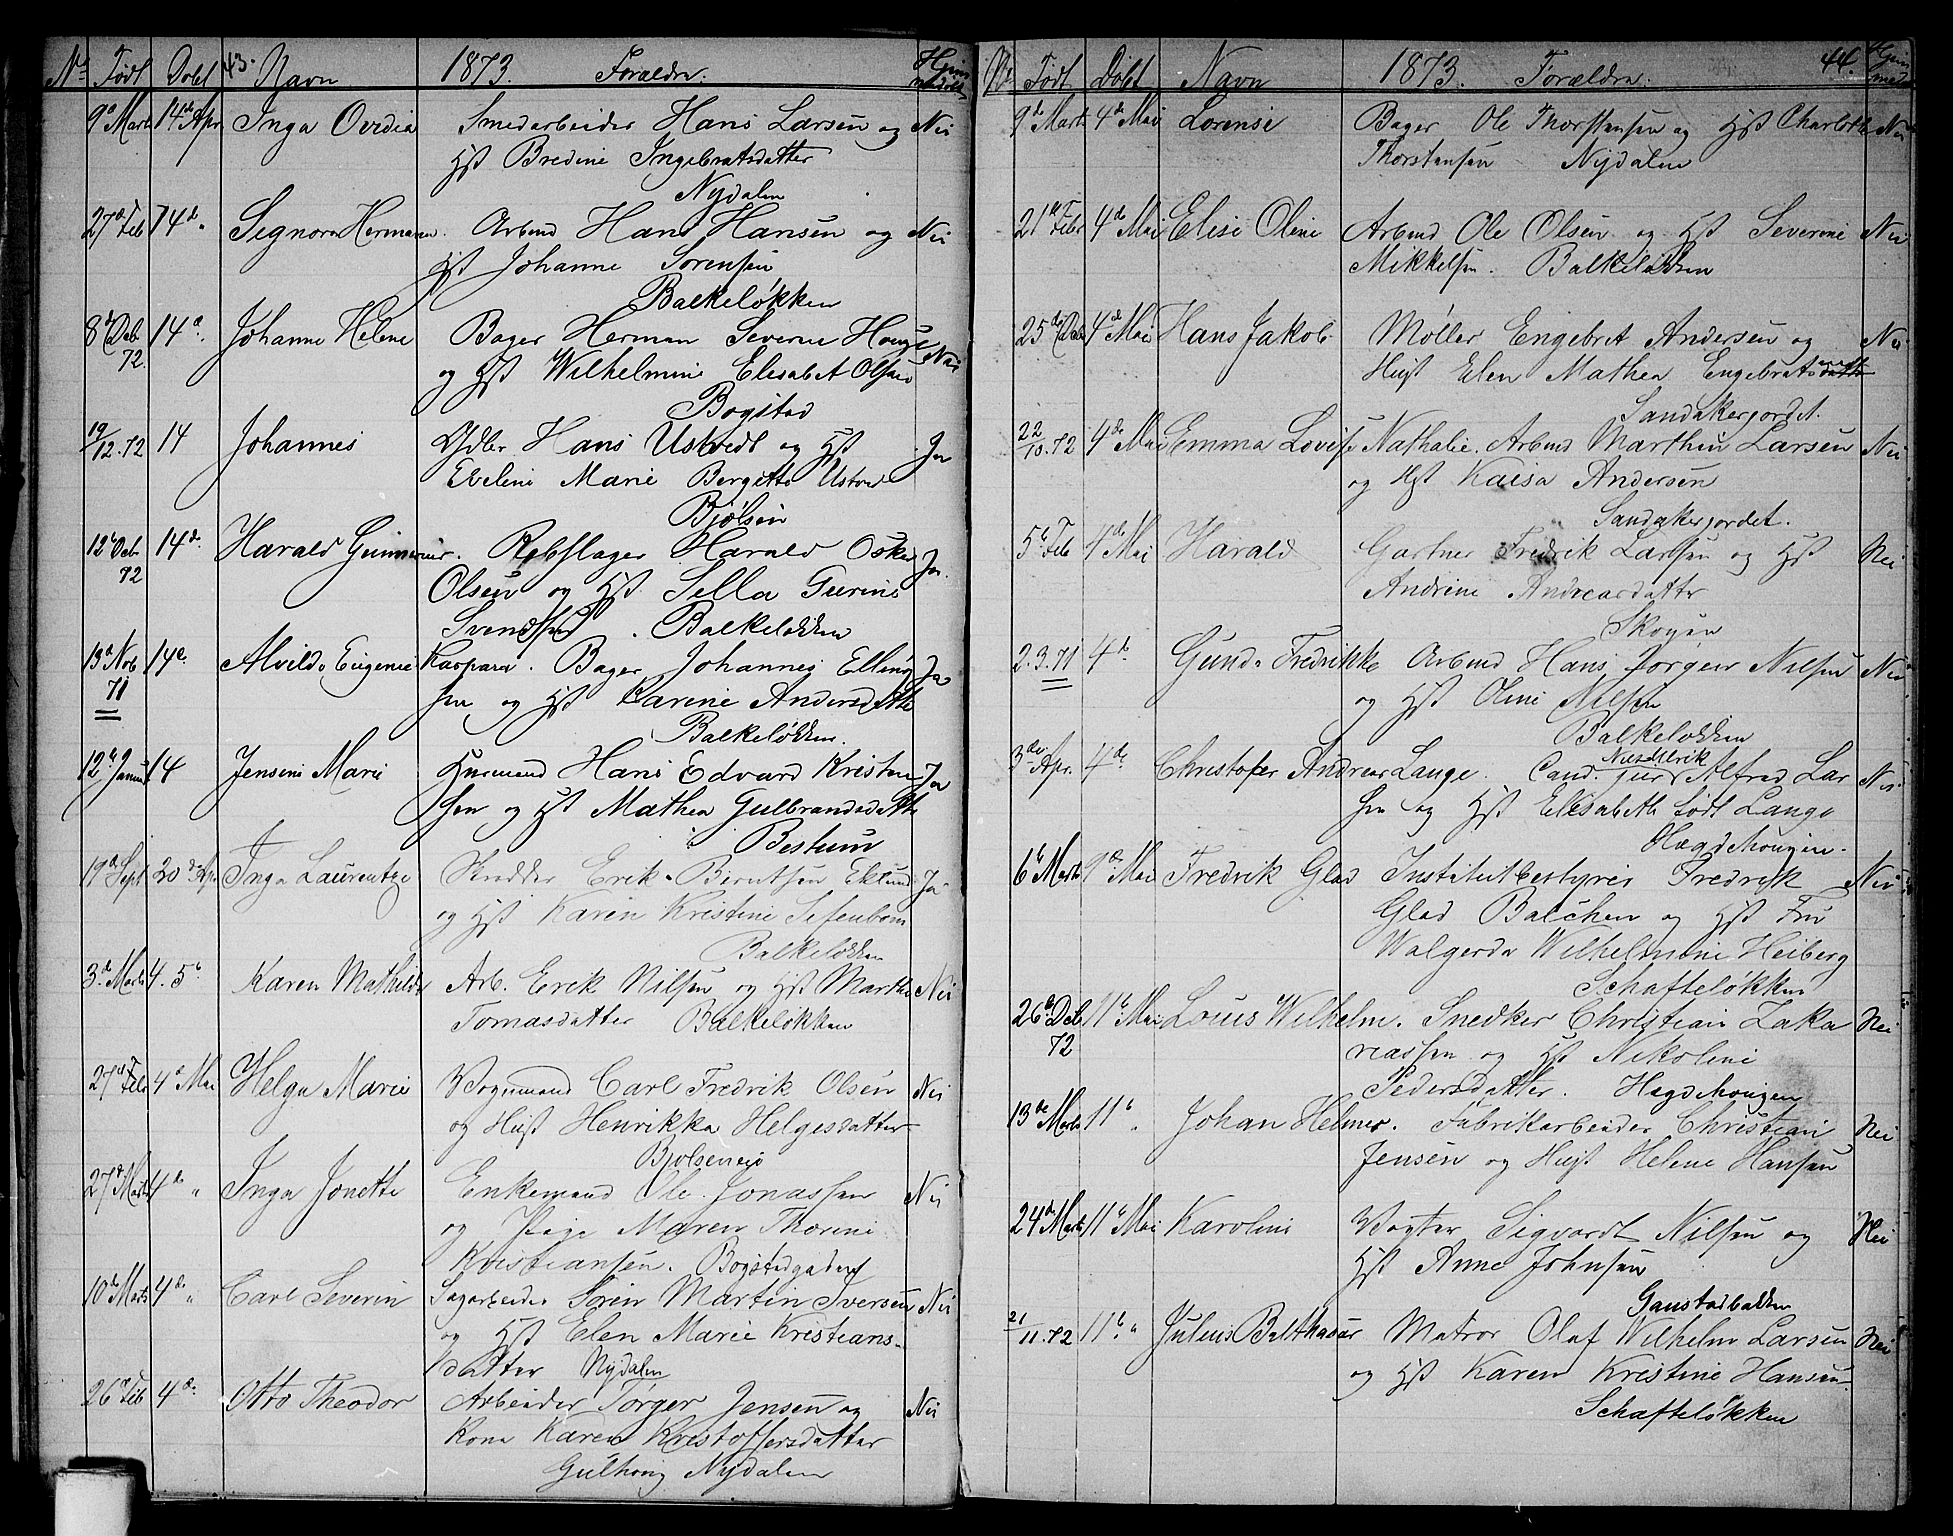 Nr Født Dobt 43. Navn 1873. Forældre. Hjem
medobt
9d Marts 14de Apr Inga Ovidia Smedarbeider Hans Larsen og Nei
Hst Bredine Ingebretsdatter
Nydalen
27d Feb 14de " Signora Herman. Arbmd Hans Hansen og Nei
Hst Johanne Sorensen
Balkeløkken
8d Deb 14d. Johanne Helene Bager Herman Severin Houge Nei
72. og Hst Wilhelmine Elisabet Olsen
Bogstad
19/12.72 14 Johannes Hans Ustvedt og Hst Ja
Eveline Marie Bergitte Ustved
Bjølsen
12te Deb. 14d. Harald Gunnerius. Rebslager Harald Oskar Ja
72 Olsen og Hst. Sella Gurine
Svendsen. Balkeløkken
13d Nob. 14d. Alvilde Eugenie Kaspara. Bager Johannes Elling Ja
71 sen og Hst Karine Andersdatte
Balkeløkken.
12te Januar 14 Jensine Marie Kurmand Hans Edvard Kristen Ja
sen og Hst Mathea Gulbrandsdatte
Bestum
19d Sept 20de Apr Inga Laurentze Skrædder Erik Berntsen Eklund Ja
og Hst Karen Kristine
Balkeløkken
3de Marts 4. 5te Karen Mathilde Arb. Erik Nilsen og Hst Marthe Nei
Tomasdatter Balkeløkken
27d Feb 4d Mai Helga Marie Vognmand Carl Fredrik Olsen Nei
og Hust Henrikka Helgesdatter
Bjølseneie
27d Marts 4de " Inga Jonette Enkemand Ole Jonassen Nei
og Pige Maren Thorine
Kristiansen. Bogstadgaden
10de Marts 4de " Carl Severin Sagarbeider Søren Martin Iversen Nei
og Hst Elen Marie Kristians-
datter Nydalen
26d Feb 4de. Otto Theodor Arbeider Torger Jensen og Nei
Kone Karen Kristoffersdatter
Gulhoug Nydalen
Nr Født Døbt Navn 1873. Forældre. 44. Hjem
med
9de Marts 4de Mai Lorense Bager Ole Thorstensen og Hst Charlotte Nei
Thorstensen Nydalen
21de Febr 4de Mai Elise Oline Arbmd Ole Olsen og Hst Severine Nei
Mikkelsen. Balkeløkken
25de Deb 4de Mai Hans Jakob. Møller Engebret Andersen og Nei
Hust Elen Mathea Engebretsdatter
Sandakerjordet.
22/10.72 4de Mai Emma Lovise Nathalie. Arbmd Marthin Larsen Nei
og Hst Kaisa Andersen
Sandakerjordet.
5te Feb 4de Mai Harald Gartner Fredrik Larsen og Hst Nei
Andrine Andreasdatter
Skoyen
2.3.71 4de Gunda Fredrikke Arbmd Hans Jorgen Nilsen Nei
og Hst Oline Nilsen
Balkeløkken
3de Apr. 4de Christofer Andreas Lange. Cand. jur Nils Ulrik Alfred Lar Nei
sen og Hst Elisabeth født Lange
Hægdehougen.
6te Marts 9de Mai Fredrik Glad Institutbestyrer Fredrik Nei
Glad Balchen og Hst Fru
Walgerda Wilhelmine Heiberg
Schafteløkken
26te Deb 11te Mai Louis Wilhelm. Snedker Christian Zaka Nei
72 riassen og Hst Nikoline
Pedersdatter. Hægdehougen
13de Marts 11te " Johan Helmer. Fabrikarbeider Christian Nei
Jensen og Hust Helene Hansen
24de Marts 11te Mai Karoline Vogter Sigvardt Nilsen og Nei
Hst Anne Johnsen
Gaustadbakken
21/11.72 11te " Julius Balthasar Matros Olaf Wilhelm Larsen Nei
og Hst Karen Kristine Hansen.
Schafteløkken